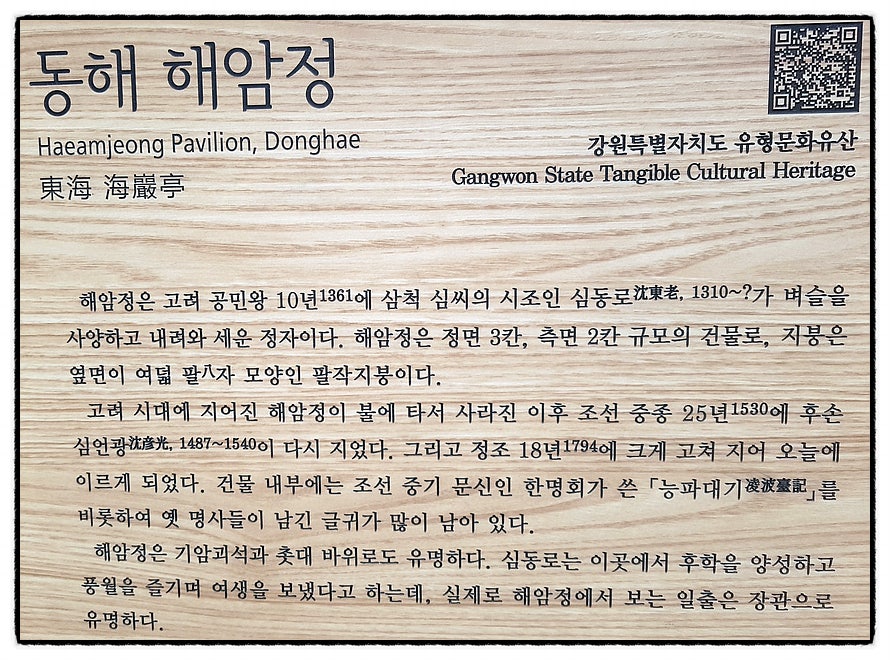 동해 해암정
Haeamjeong Pavilion, Donghae
東海 海巖亭
강원특별자치도 유형문화유산
Gangwon State Tangible Cultural Heritage
해암정은 고려 공민왕 10년1361에 삼척 심씨의 시조인 심동로沈東老, 1310~?가 벼슬을
사양하고 내려와 세운 정자이다. 해암정은 정면 3칸, 측면 2칸 규모의 건물로, 지붕은
옆면이 여덟 팔八자 모양인 팔작지붕이다.
고려 시대에 지어진 해암정이 불에 타서 사라진 이후 조선 중종 25년1530에 후손
심언광沈彦光, 1487~1540이 다시 지었다. 그리고 정조 18년1794에 크게 고쳐 지어 오늘에
이르게 되었다. 건물 내부에는 조선 중기 문신인 한명회가 쓴 「능파대기凌波臺記」를
비롯하여 옛 명사들이 남긴 글귀가 많이 남아 있다.
해암정은 기암괴석과 촛대 바위로도 유명하다. 심동로는 이곳에서 후학을 양성하고
풍월을 즐기며 여생을 보냈다고 하는데, 실제로 해암정에서 보는 일출은 장관으로
유명하다.